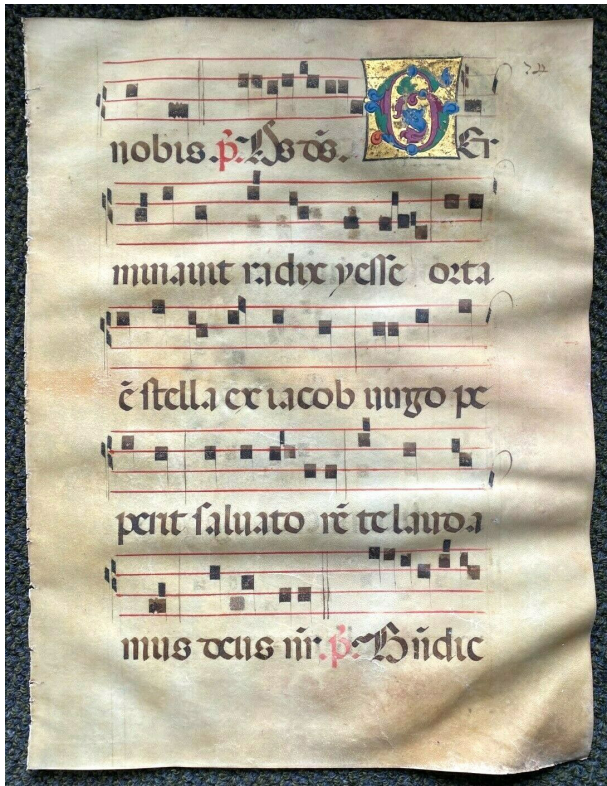 nobis. p̃. Ds ds. GEr
minauit radix yesse orta
ẽ stella ex iacob uirgo pe
perit saluato rẽ te lauda
mus deus nr̃. p̃. Bñdic